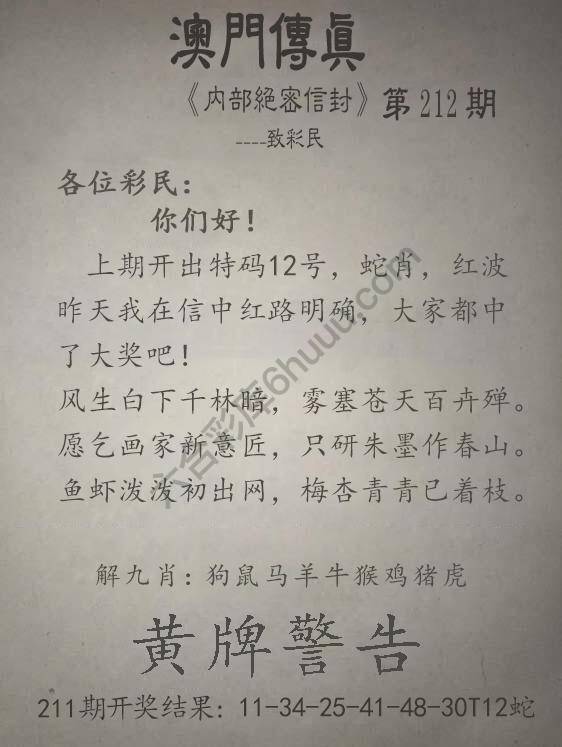 澳門傳眞
《内部絕密信封》第212期
----致彩民
各位彩民：
你们好！
上期开出特码12号，蛇肖，红波
昨天我在信中红路明确，大家都中
了大奖吧！
风生白下千林暗，雾塞苍天百卉殚。
愿乞画家新意匠，只研朱墨作春山。
鱼虾泼泼初出网，梅杏青青已着枝。
六合彩库6huuu.com
解九肖：狗鼠马羊牛猴鸡猪虎
黄牌警告
211期开奖结果：11-34-25-41-48-30T12蛇